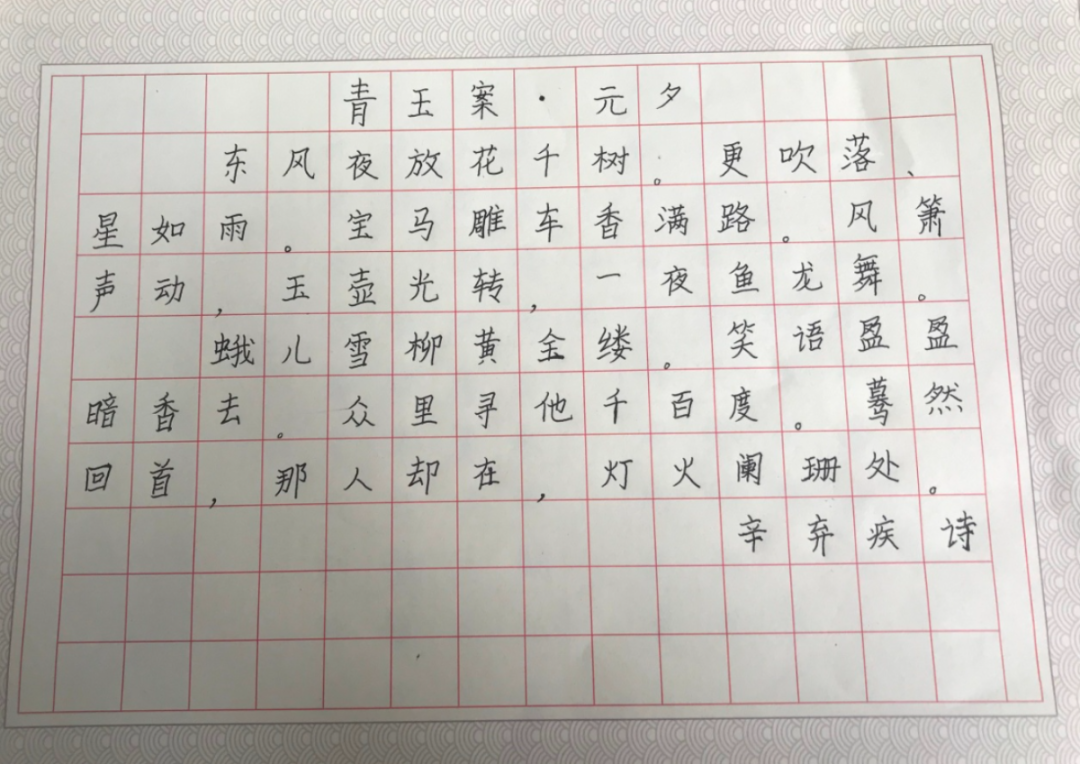 青玉案·元夕
东风夜放花千树。更吹落、
星如雨。宝马雕车香满路。风箫
声动,玉壶光转,一夜鱼龙舞。
蛾儿雪柳黄金缕。笑语盈盈
暗香去。众里寻他千百度。蓦然
回首,那人却在,灯火阑珊处。
辛弃疾诗